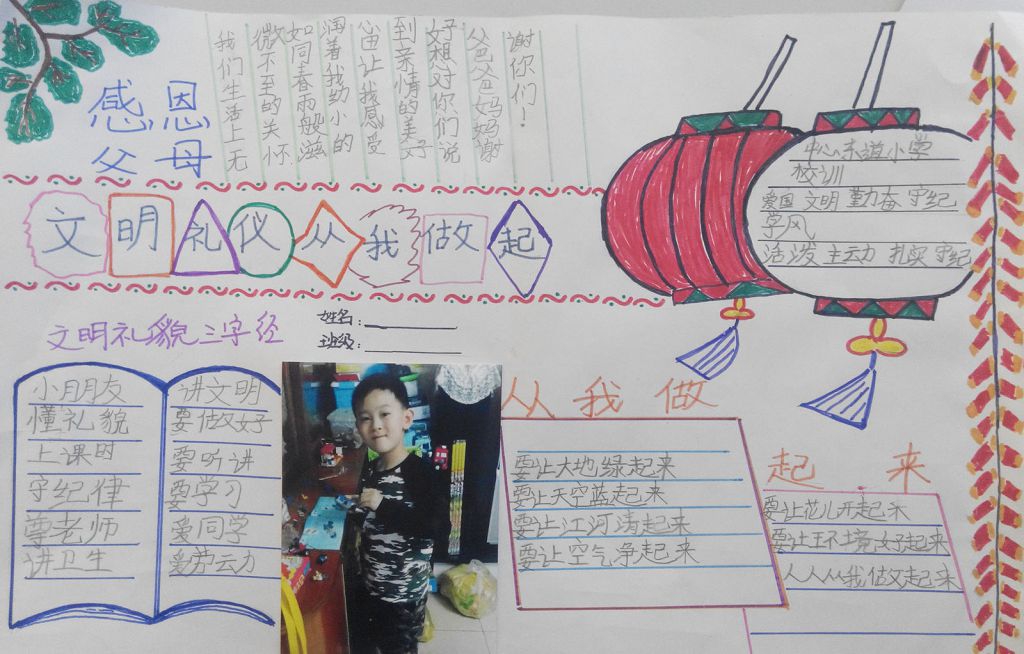 感恩
父母
我们生活上无
微不至的关怀
如同春雨般滋
润着我幼小的
心田让我感受
到亲情的美好
好想对你们说
爸爸妈妈谢
谢你们！
中心东道小学
校训
爱国 文明 勤奋 守纪
学风
活泼 主动 扎实 守纪
文明礼仪从我做起
文明礼貌三字经
姓名：
班级：
小朋友
懂礼貌
上课时
守纪律
尊老师
讲卫生
讲文明
要做好
要听讲
要学习
爱同学
爱劳动
从我做
起来
要让大地绿起来
要让天空蓝起来
要让江河清起来
要让空气净起来
要让花儿开起来
要让环境好起来
人人从我做起来